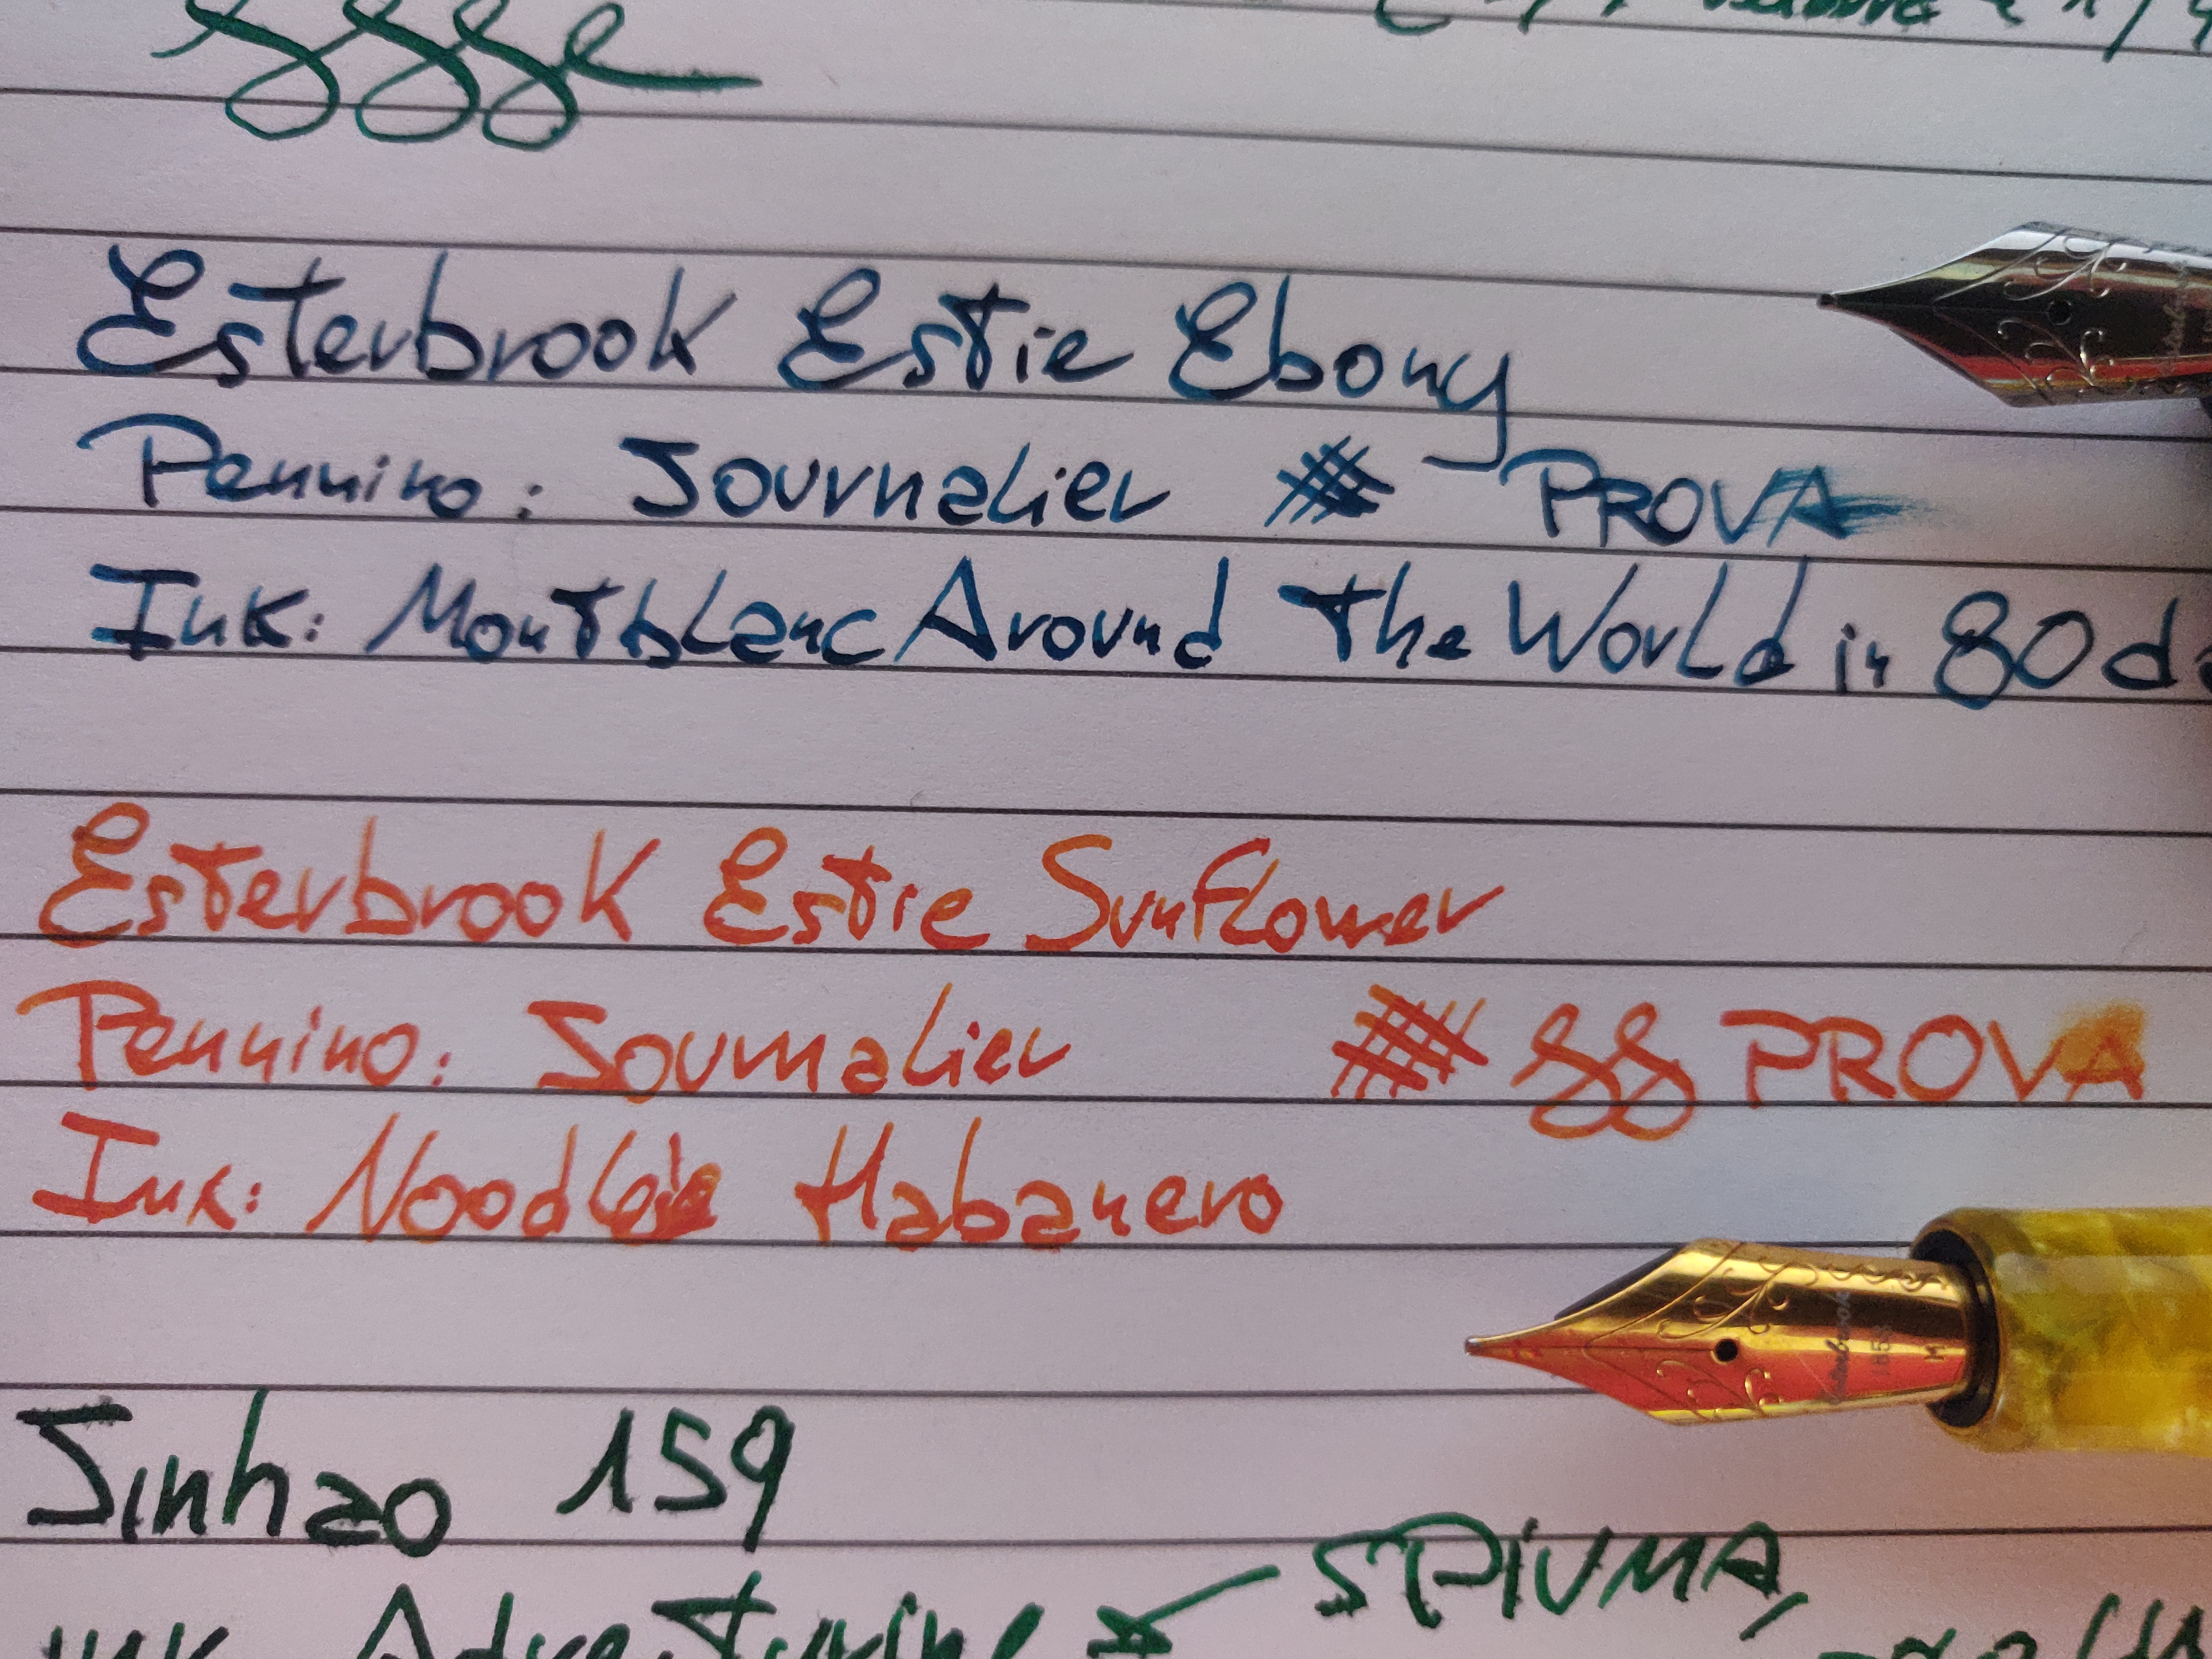 Esterbrook Estie Ebony
Pennino: Journalier PROVA
Ink: Montblanc Around The World in 80 da
Esterbrook Estie Sunflower
Pennino: Journalier PROVA
Ink: Noodle's Habanero
Esterbrook
1858
M
Jinhao 159
SPIUMA,
Ink Adventurine